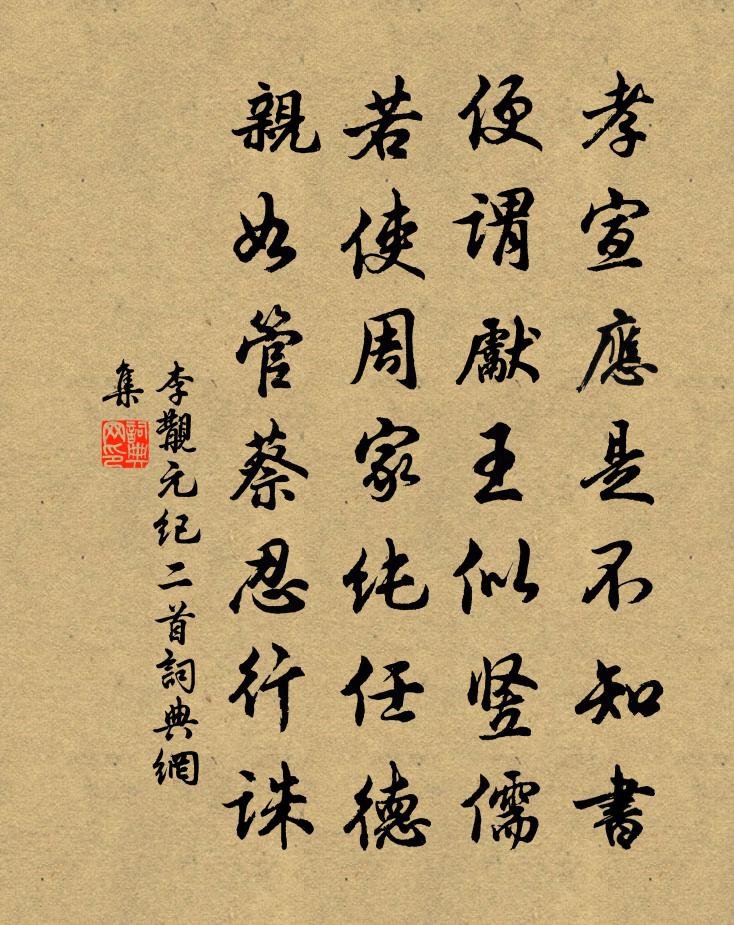 孝宣應是不知書
便謂獻王似竪儒
若使周家純任德
親如管蔡忍行誅
李覯元紀二首詞典網
集
詞典
网印